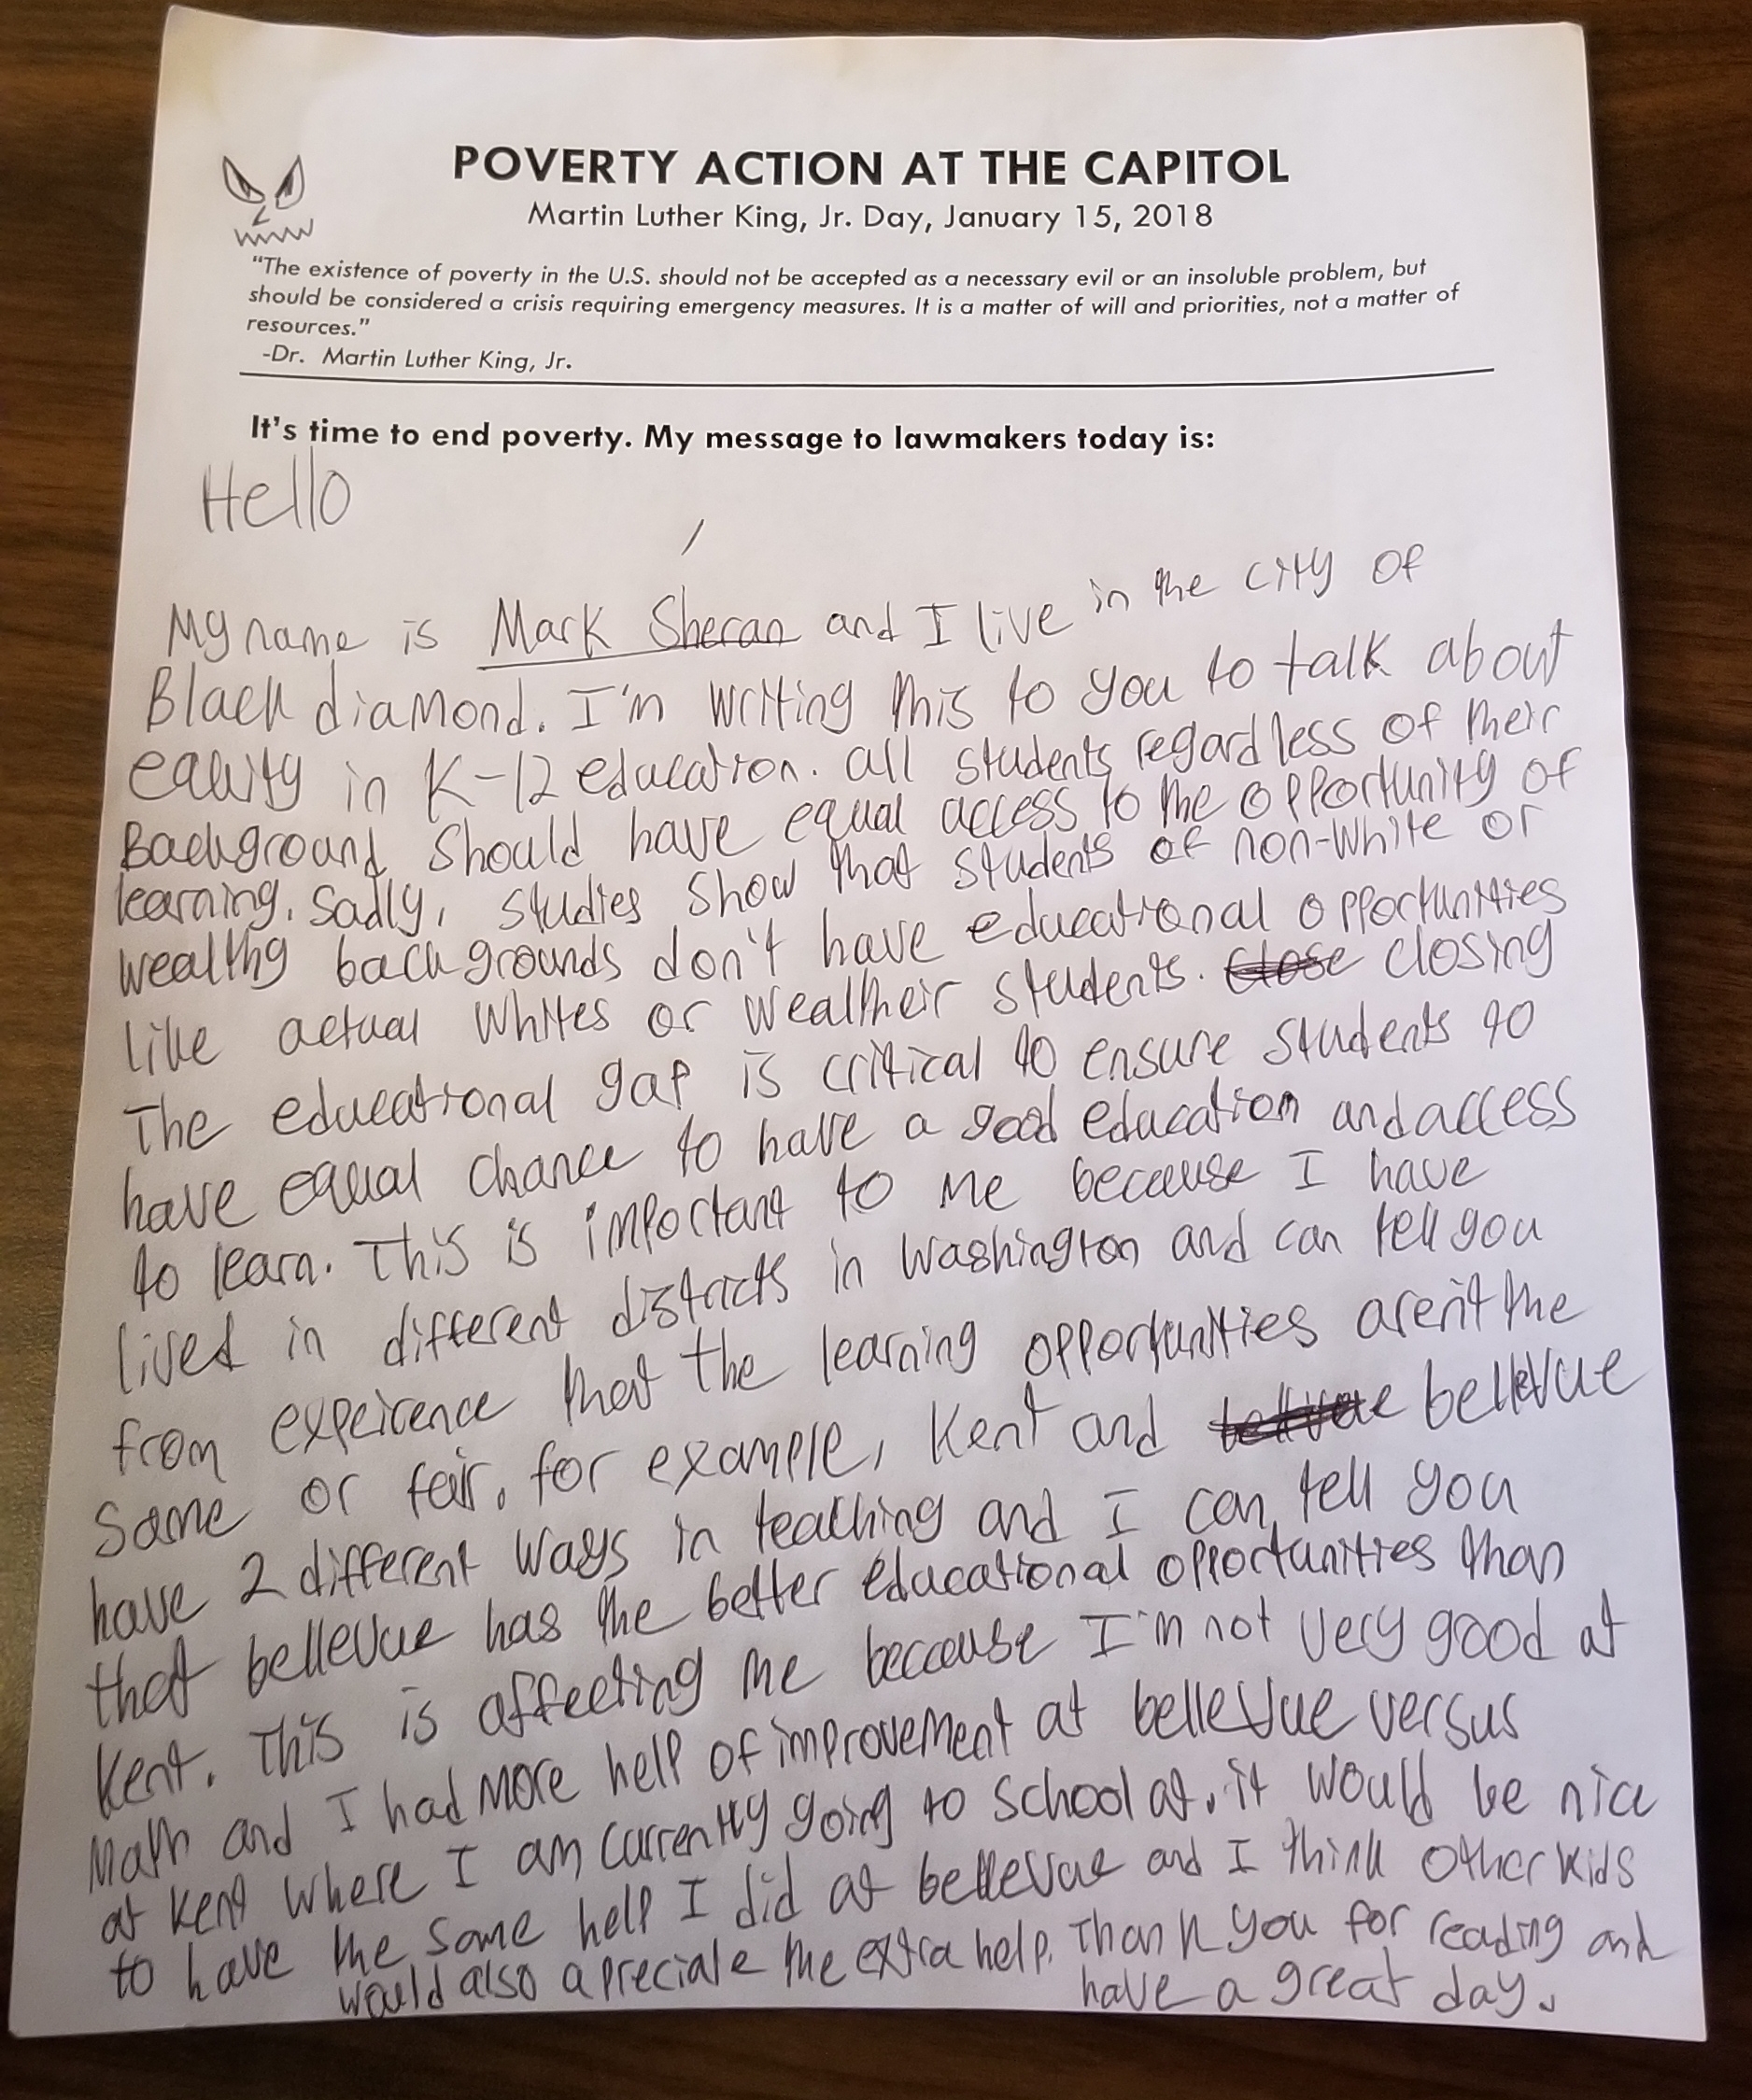 POVERTY ACTION AT THE CAPITOL
Martin Luther King, Jr. Day, January 15, 2018
"The existence of poverty in the U.S. should not be accepted as a necessary evil or an insoluble problem, but
should be considered a crisis requiring emergency measures. It is a matter of will and priorities, not a matter of
resources."
-Dr. Martin Luther King, Jr.
It's time to end poverty. My message to lawmakers today is:
Hello
My name is Mark Sheran and I live in the city of
Black diamond. I'm writing this to you to talk about
equity in K-12 education. all students regardless of their
Background should have equal access to the opportunity of
learning. Sadly, studies show that students of non-white or
wealthy backgrounds don't have educational opportunities
like actual whites or wealtheir students. close closing
The educational gap is critical to ensure students to
have equal chance to have a good education and access
to learn. This is important to me because I have
lived in different districts in Washington and can tell you
from expeirence that the learning opportunities aren't the
Same or fair. for example, Kent and bellevue
have 2 different ways in teaching and I can tell you
that bellevue has the better educational opportunities than
Kent. This is affecting me because I'm not very good at
Math and I had more help of improvement at bellevue versus
at Kent where I am currently going to school at. it would be nice
to have the same help I did at bellevue and I think other kids
would also apreciate the extra help. Thank you for reading and
have a great day.